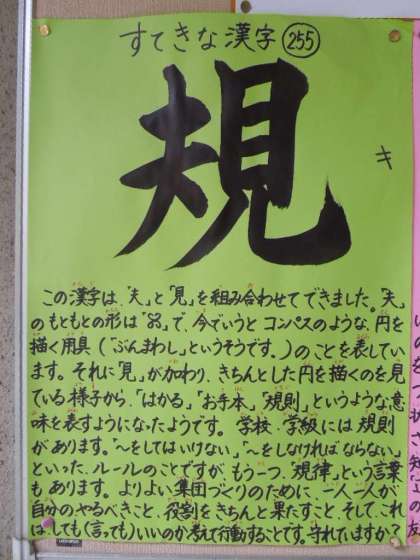 すてきな漢字 255
規
キ
この漢字は、「夫」と「見」を組み合わせてできました。「夫」
のもともとの形は「」で、今でいうとコンパスのような、円を
描く用具(「ぶんまわし」というそうです。)のことを表してい
ます。それに「見」が加わり、きちんとした円を描くのを見
ている様子から、「はかる」、「お手本」、「規則」というような意
味を表すようになったようです。学校・学級には規則
があります。「〜をしてはいけない」、「〜をしなければならない」
といった、ルールのことですが、もう一つ、「規律」という言葉
もあります。よりよい集団づくりのために、一人一人が
自分のやるべきこと、役割をきちんと果たすこと、そして、これ
は、しても(言っても)いいのか考えて行動することです。守れていますか?